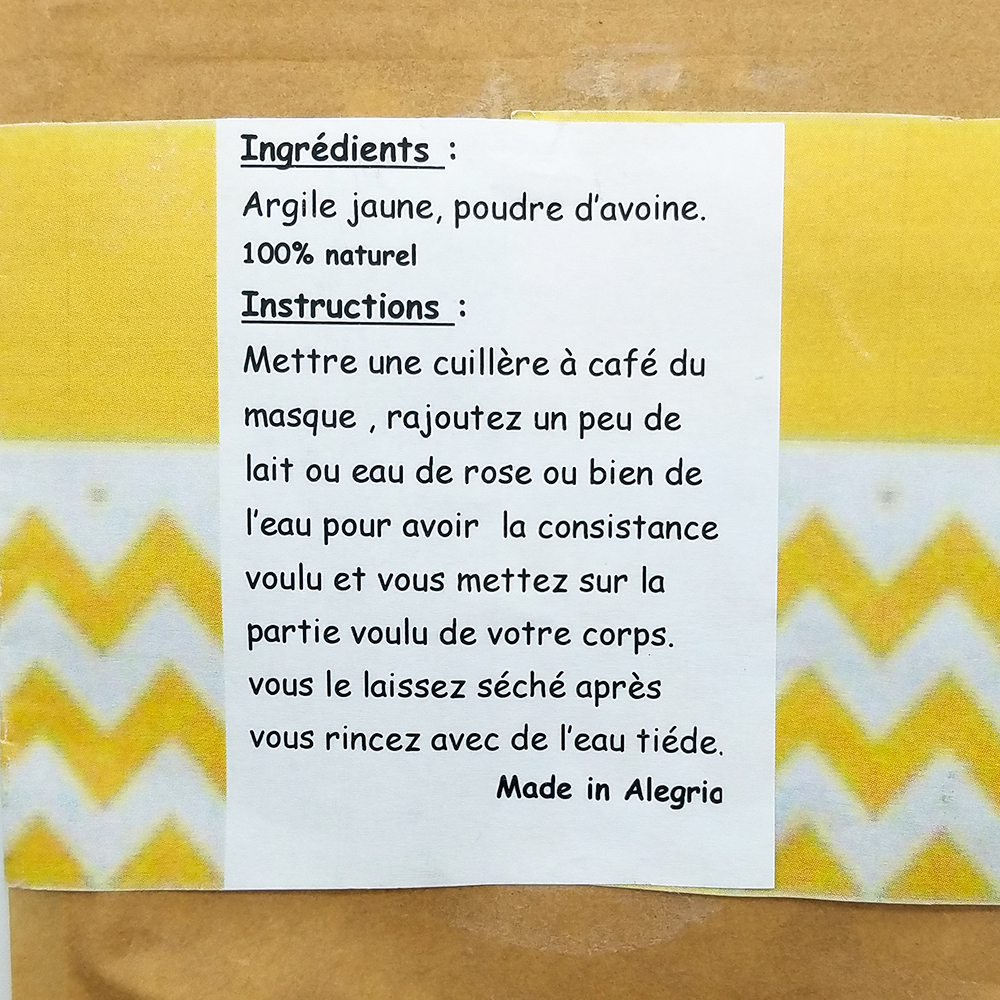 Ingrédients :
Argile jaune, poudre d'avoine.
100% naturel
Instructions :
Mettre une cuillère à café du
masque , rajoutez un peu de
lait ou eau de rose ou bien de
l'eau pour avoir la consistance
voulu et vous mettez sur la
partie voulu de votre corps.
vous le laissez séché après
vous rincez avec de l'eau tiéde.
Made in Alegria